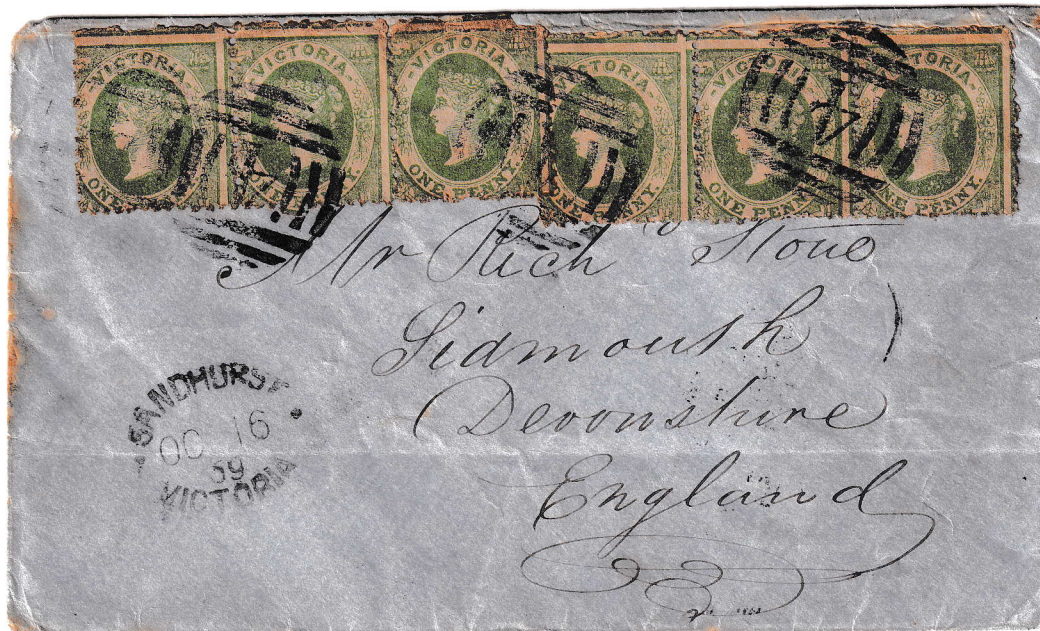 VICTORIA ONE PENNY
VICTORIA
VICTORIA ONE PENNY
VICTORIA ONE PENNY
VICTORIA ONE PENNY
VICTORIA ONE PENNY
Mr Richd Stone
Sidmouth
Devonshire
England
SANDHURST
OC 16
59
VICTORIA